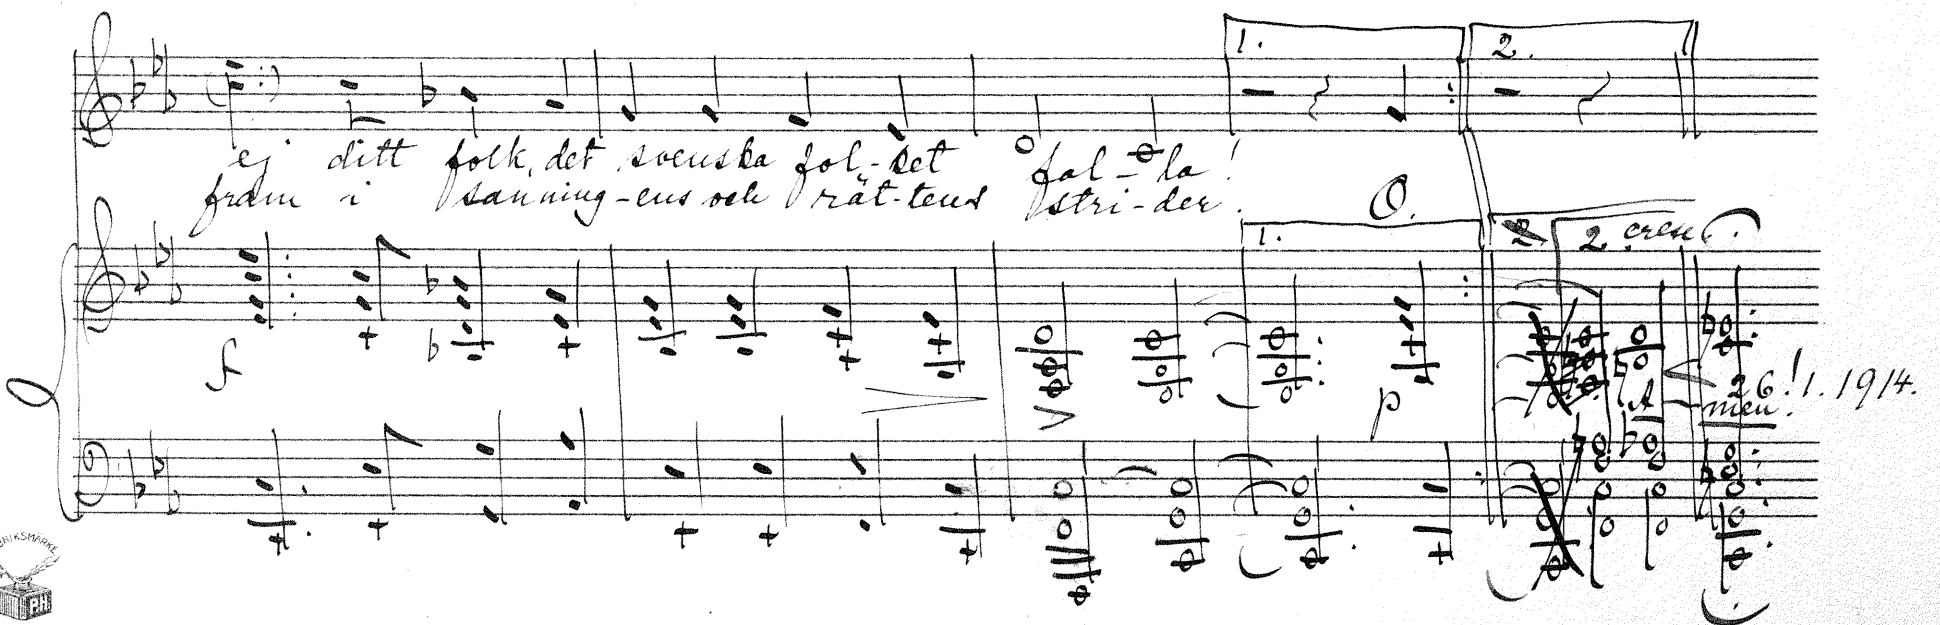 1. 2.
ej ditt folk, det svenska fol-ket fal-la!
fram i sanning-ens och rät-tens stri-der.
O.
1. 2. cresc
f p
26!1.1914.
A - men!
BRIKSMÄRKE
P.H.